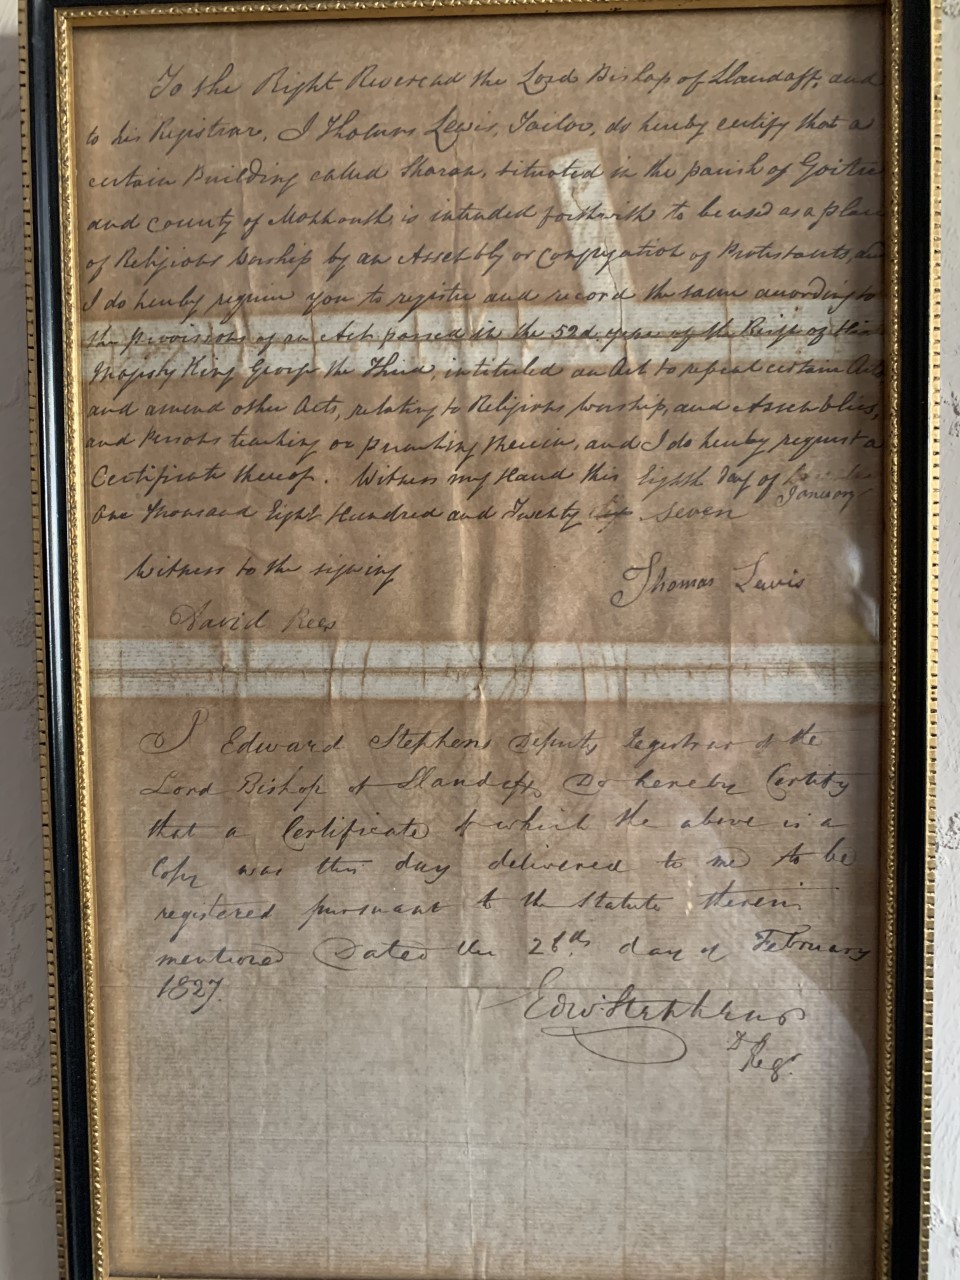 To the Right Reveread the Lord Bishop of Llandaff, and
to his Registrar, I Thomas Lewis, Tailor, do hereby certify that a
certain Building called Sharon, situated in the parish of Goitre
and County of Monmouth, is intended forthwith to be used as a place
of Religious Worship by an Assembly or Congregation of Protestants, and
I do hereby require you to register and record the same according to
the provisions of an Act passed in the 52d. year of the Reign of his
Majesty King George the Third, intituled an Act to repeal certain Acts
and amend other Acts, relating to Religious Worship, and Assemblies,
and Persons teaching or preaching therein, and I do hereby request a
Certificate thereof. Witness my Hand this Eighth day of
January
One Thousand Eight Hundred and Twenty Seven
Witness to the signing
Thomas Lewis
David Rees
I Edward Stephens Deputy Registrar of the
Lord Bishop of Llandaff Do hereby Certify
that a Certificate of which the above is a
Copy was this day delivered to me to be
registered pursuant to the Statute therein
mentioned Dated the 28th. day of February
1827.
Edwd. Stephens
Dy Regr.